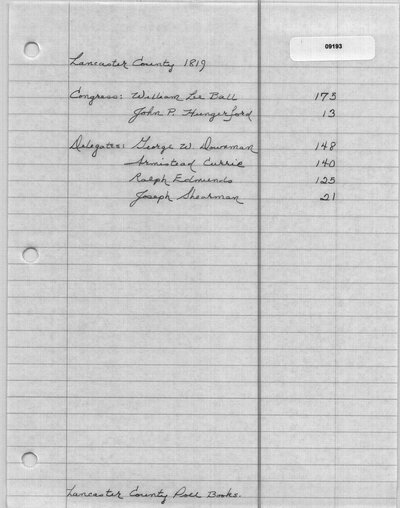 09193
Lancaster County 1819
Congress: William Lee Ball 175
John P. Hungerford 13
Delegates: George W. Downman 148
Armistead Currie 140
Ralph Edmunds 125
Joseph Shearman 21
Lancaster County Poll Books.